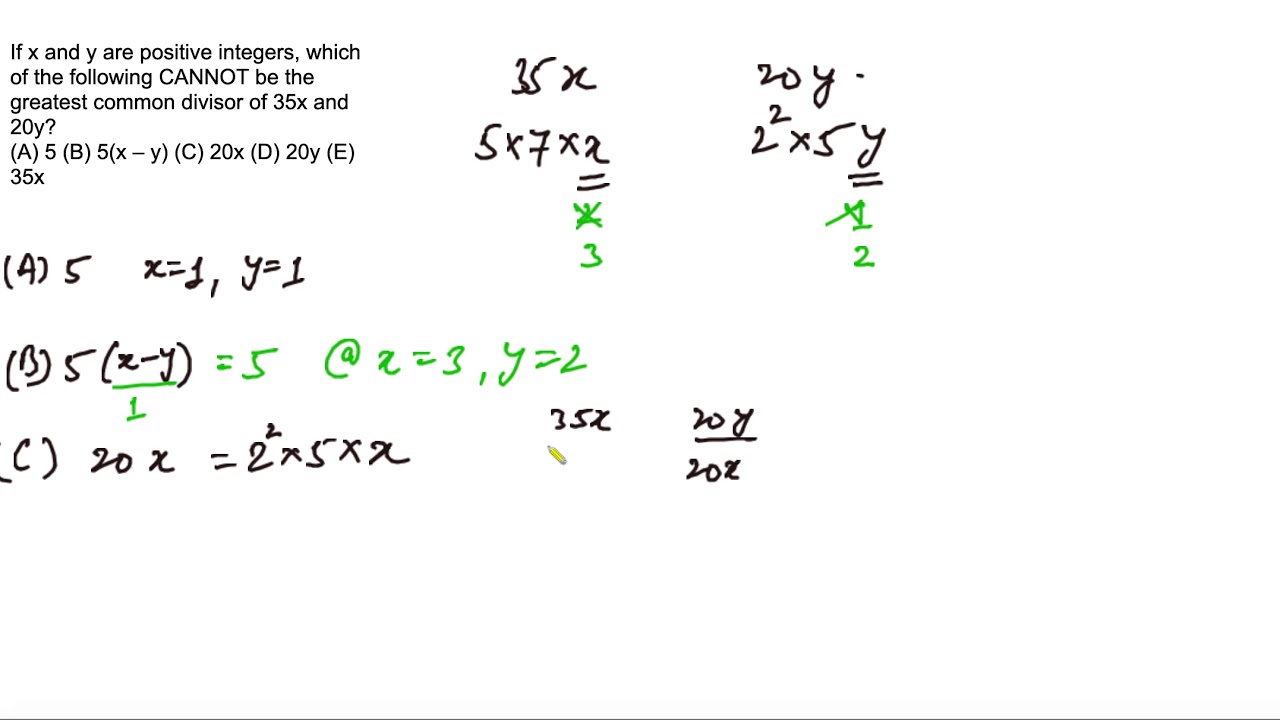 If x and y are positive integers, which
of the following CANNOT be the
greatest common divisor of 35x and
20y?
(A) 5 (B) 5(x – y) (C) 20x (D) 20y (E)
35x
35x 20y .
5×7×x 2²×5y
2 1
3 2
(A) 5 x=1, y=1
(B) 5(x-y) = 5 @ x=3, y=2
1
35x 20y
(C) 20x = 2²×5×x 20x